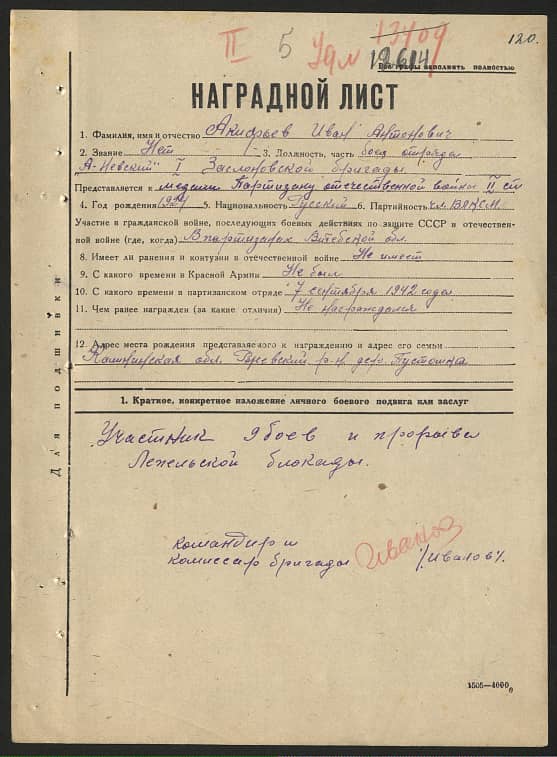 II 5 Удм 13409 120.
12614
Все графы заполнять полностью
НАГРАДНОЙ ЛИСТ
1. Фамилия, имя и отчество Акифьев Иван Антонович
2. Звание Нет 3. Должность, часть боец отряда
"А-Невский" I Заслоновской бригады.
Представляется к медали Партизану отечественной войны II ст
4. Год рождения 5. Национальность Русский 6. Партийность чл. ВЛКСМ
Участие в гражданской войне, последующих боевых действиях по защите СССР и отечествен-
ной войне (где, когда) В партизанах Витебской обл.
8. Имеет ли ранения и контузии в отечественной войне Не имеет
9. С какого времени в Красной Армии Не был
10. С какого времени в партизанском отряде 7 сентября 1942 года
11. Чем ранее награжден (за какие отличия) Не награждался
12. Адрес места рождения представляемого к награждению и адрес его семьи
Калининская обл. р-н. дер. Пустошка
Для подшивки
1. Краткое, конкретное изложение личного боевого подвига или заслуг
Участник 9 боев и прорыва
Лепельской блокады.
Командир и
комиссар бригады Иванов /Иванов/.
1505—4000